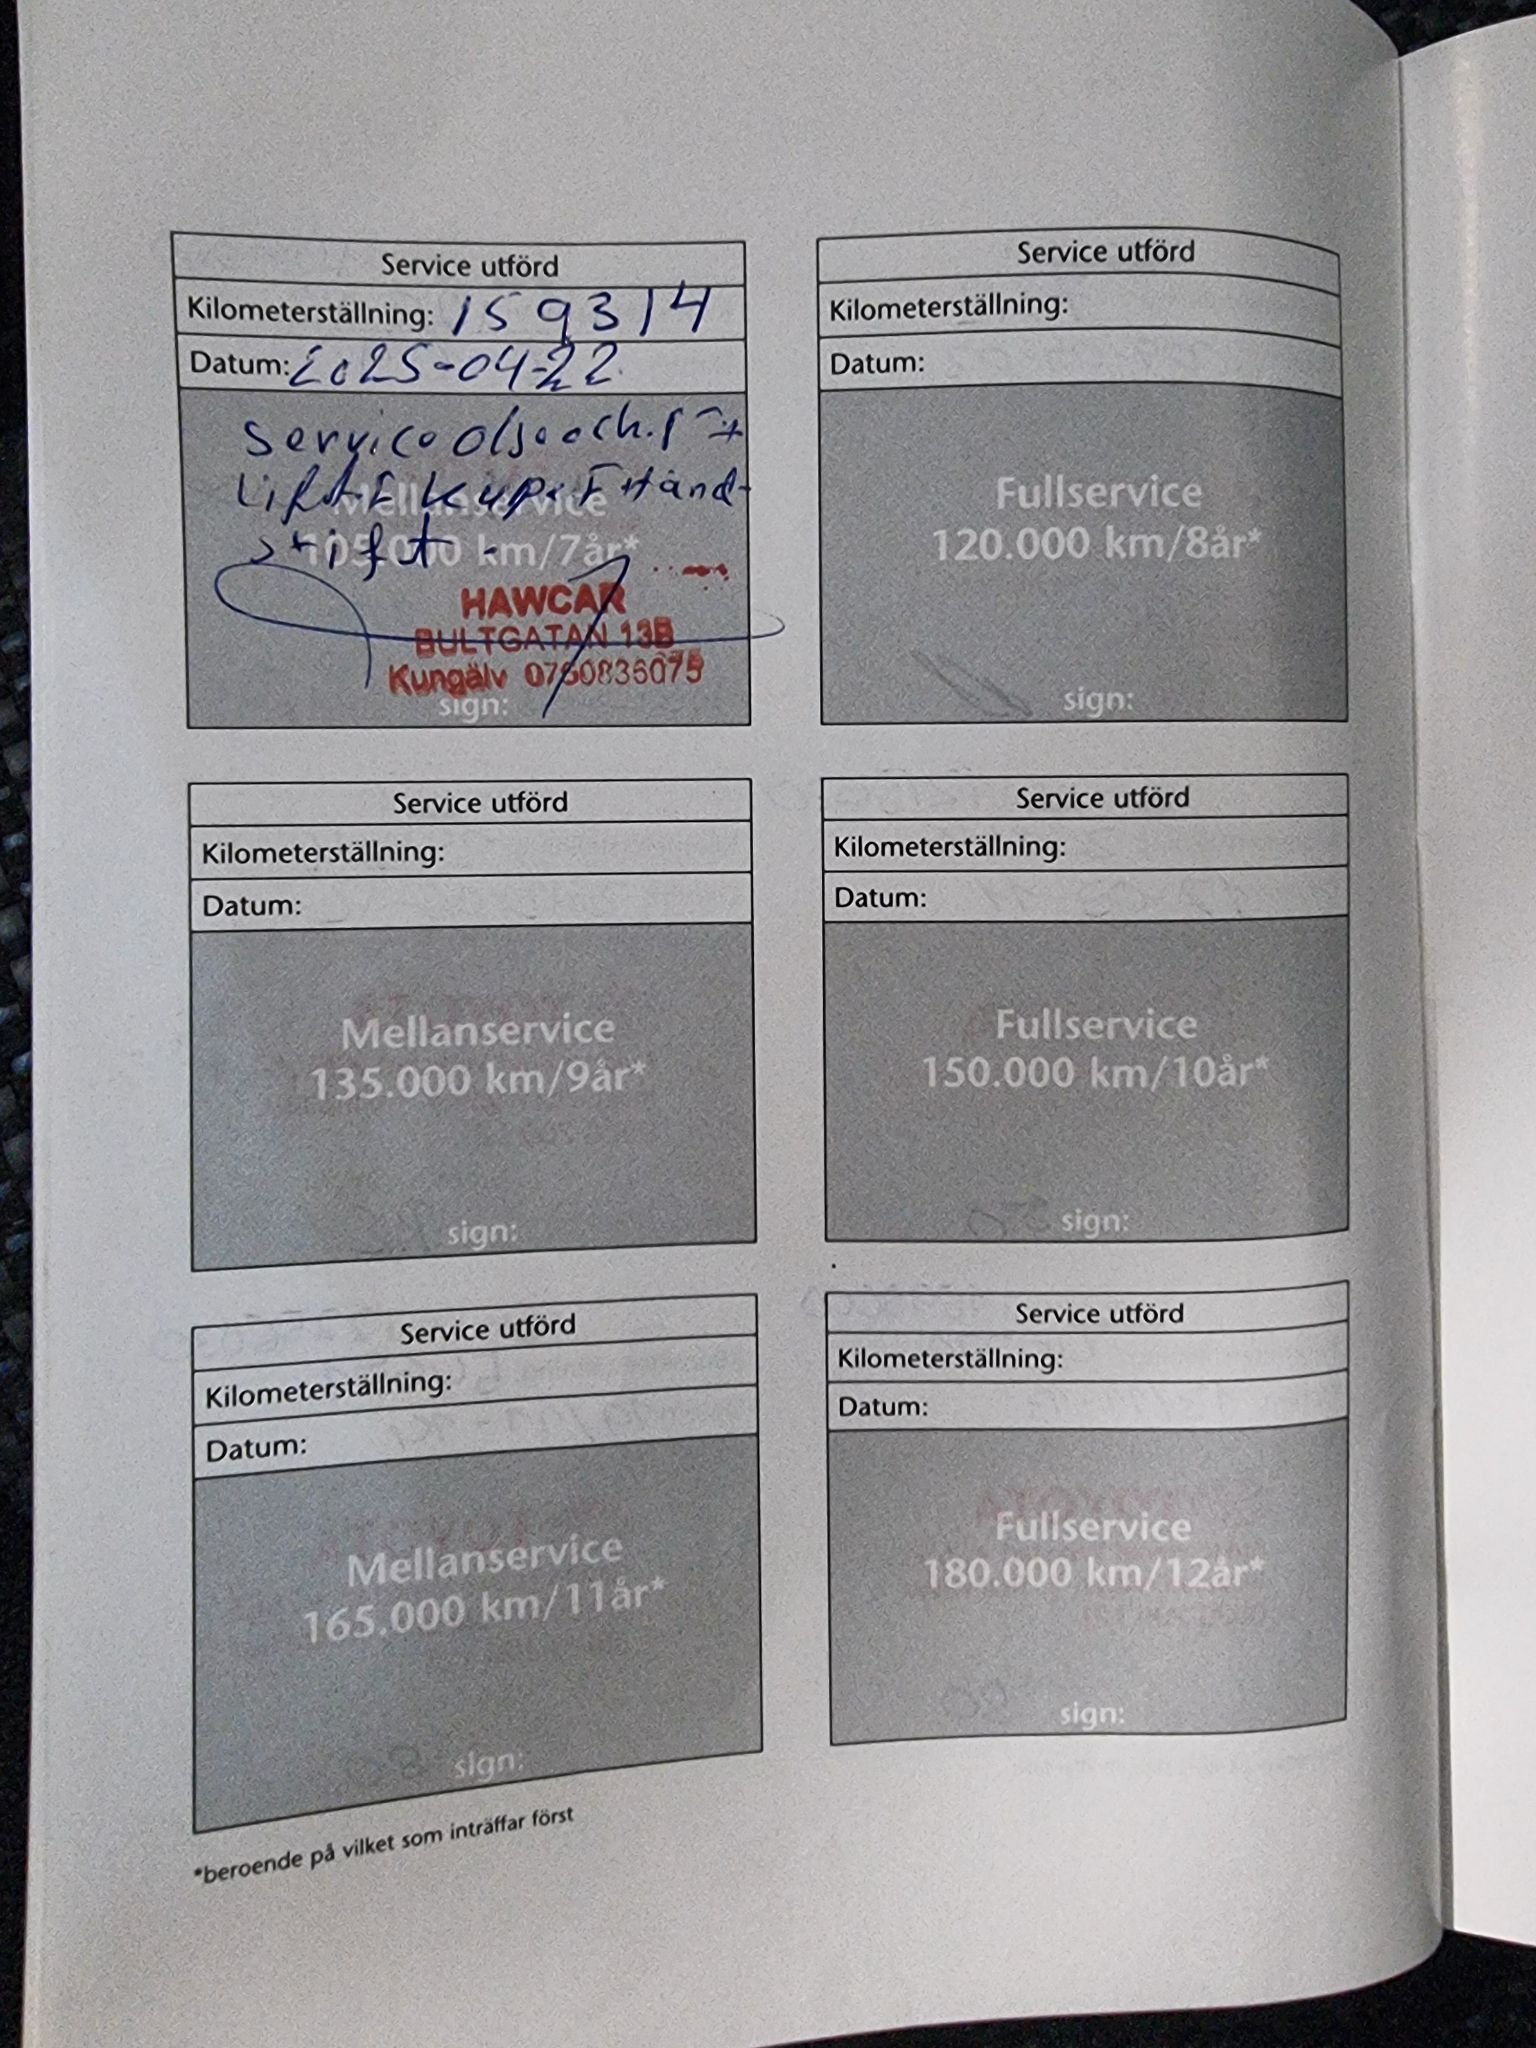 Service utförd
Kilometerställning: 159314
Datum: 2025-04-22
Service olja och
Mellanservice
105.000 km/7år*
HAWCAR
BULTGATAN 13B
Kungälv 0760836075
sign:
Service utförd
Kilometerställning:
Datum:
Fullservice
120.000 km/8år*
sign:
Service utförd
Kilometerställning:
Datum:
Mellanservice
135.000 km/9år*
sign:
Service utförd
Kilometerställning:
Datum:
Fullservice
150.000 km/10år*
sign:
Service utförd
Kilometerställning:
Datum:
Mellanservice
165.000 km/11år*
sign:
Service utförd
Kilometerställning:
Datum:
Fullservice
180.000 km/12år*
sign:
*beroende på vilket som inträffar först